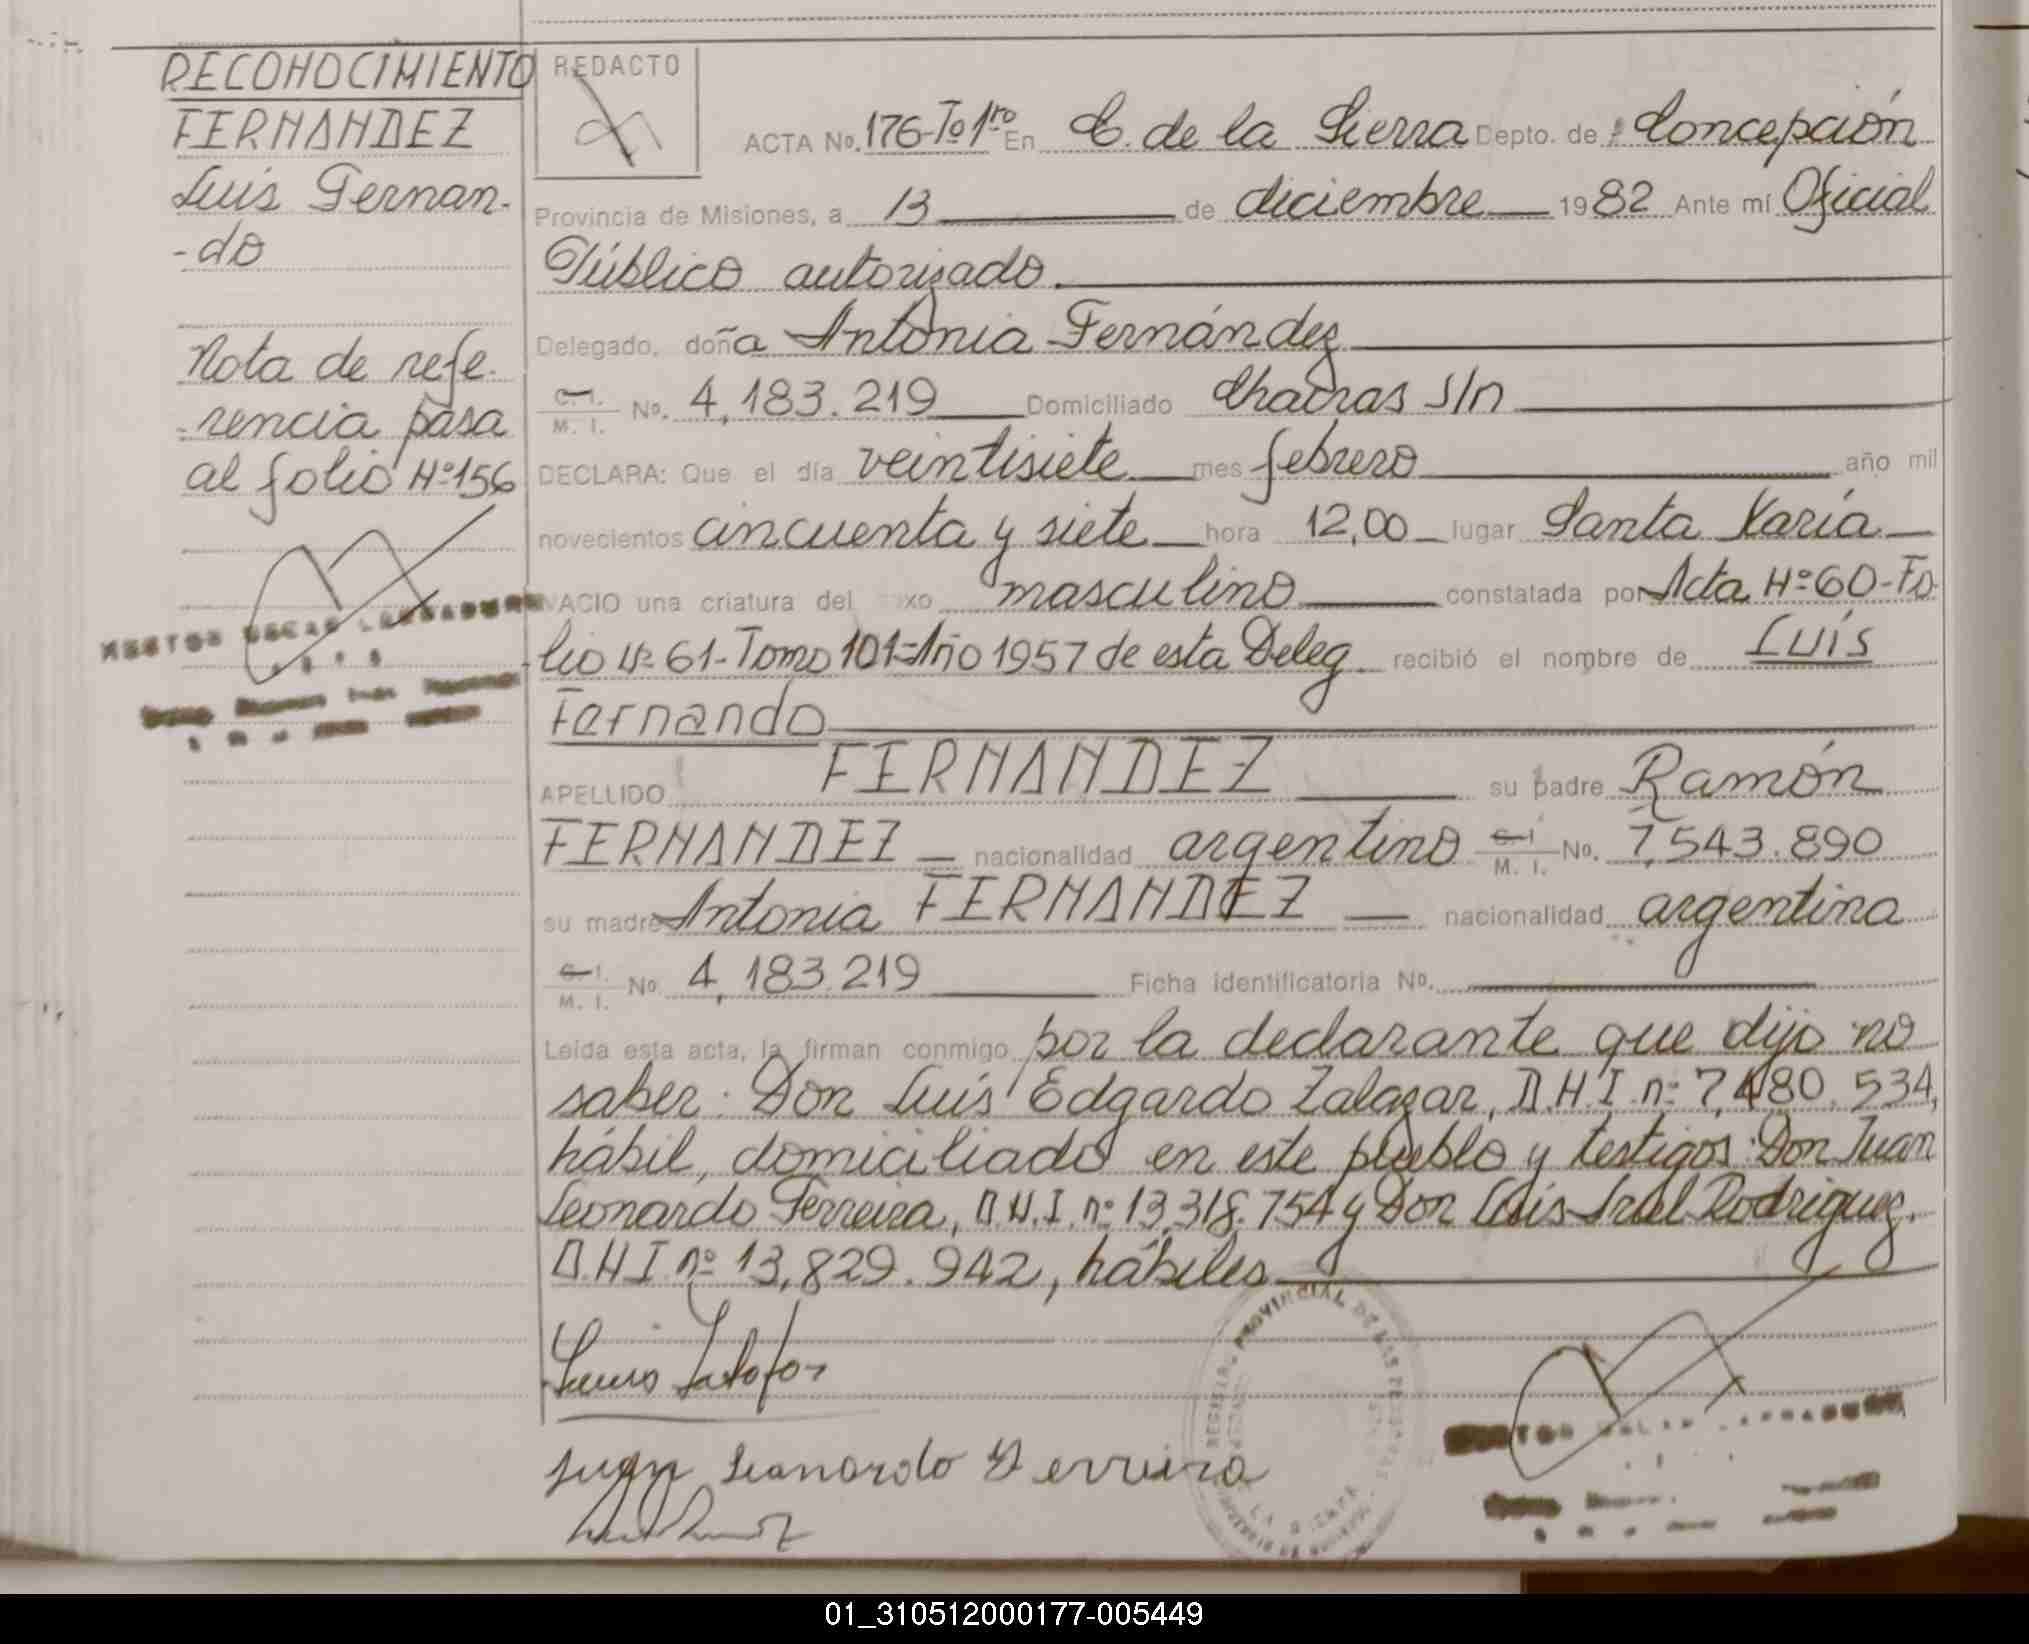 RECONOCIMIENTO
FERNANDEZ
Luis Fernan-
-do
Nota de refe-
-rencia pasa
al folio Nº 156
REDACTO
ACTA No. 176-Tº 1ro En C. de la Sierra Depto. de Concepción
Provincia de Misiones, a 13 de diciembre 1982 Ante mí Oficial
Público autorizado.
Delegado, doña Antonia Fernández
C. I. M. I. No. 4.183.219 Domiciliado Chacras S/n
DECLARA: Que el día veintisiete mes febrero año mil
novecientos cincuenta y siete hora 12,00 lugar Santa María
NACIO una criatura del xo masculino constatada por Acta Nº 60-Fo-
lio Nº 61-Tomo 101-Año 1957 de esta Deleg. recibió el nombre de Luís
Fernando
APELLIDO FERNANDEZ su padre Ramón
FERNANDEZ nacionalidad argentino C. I. M. I. No. 7.543.890
su madre Antonia FERNANDEZ nacionalidad argentina
C. I. M. I. No. 4.183.219 Ficha identificatoria No.
Leída esta acta, la firman conmigo por la declarante que dijo no
saber: Don Luis Edgardo Zalazar, D.N.I. nº 7.480.534,
hábil, domiciliado en este pueblo y testigos: Don Juan
Leonardo Ferreira, D.N.I. nº 13.318.754 y Don Luis Rodriguez.
D.N.I. nº 13.829.942, hábiles
Juan Leonardo Ferreira
REGISTRO PROVINCIAL DE LAS PERSONAS
01_310512000177-005449